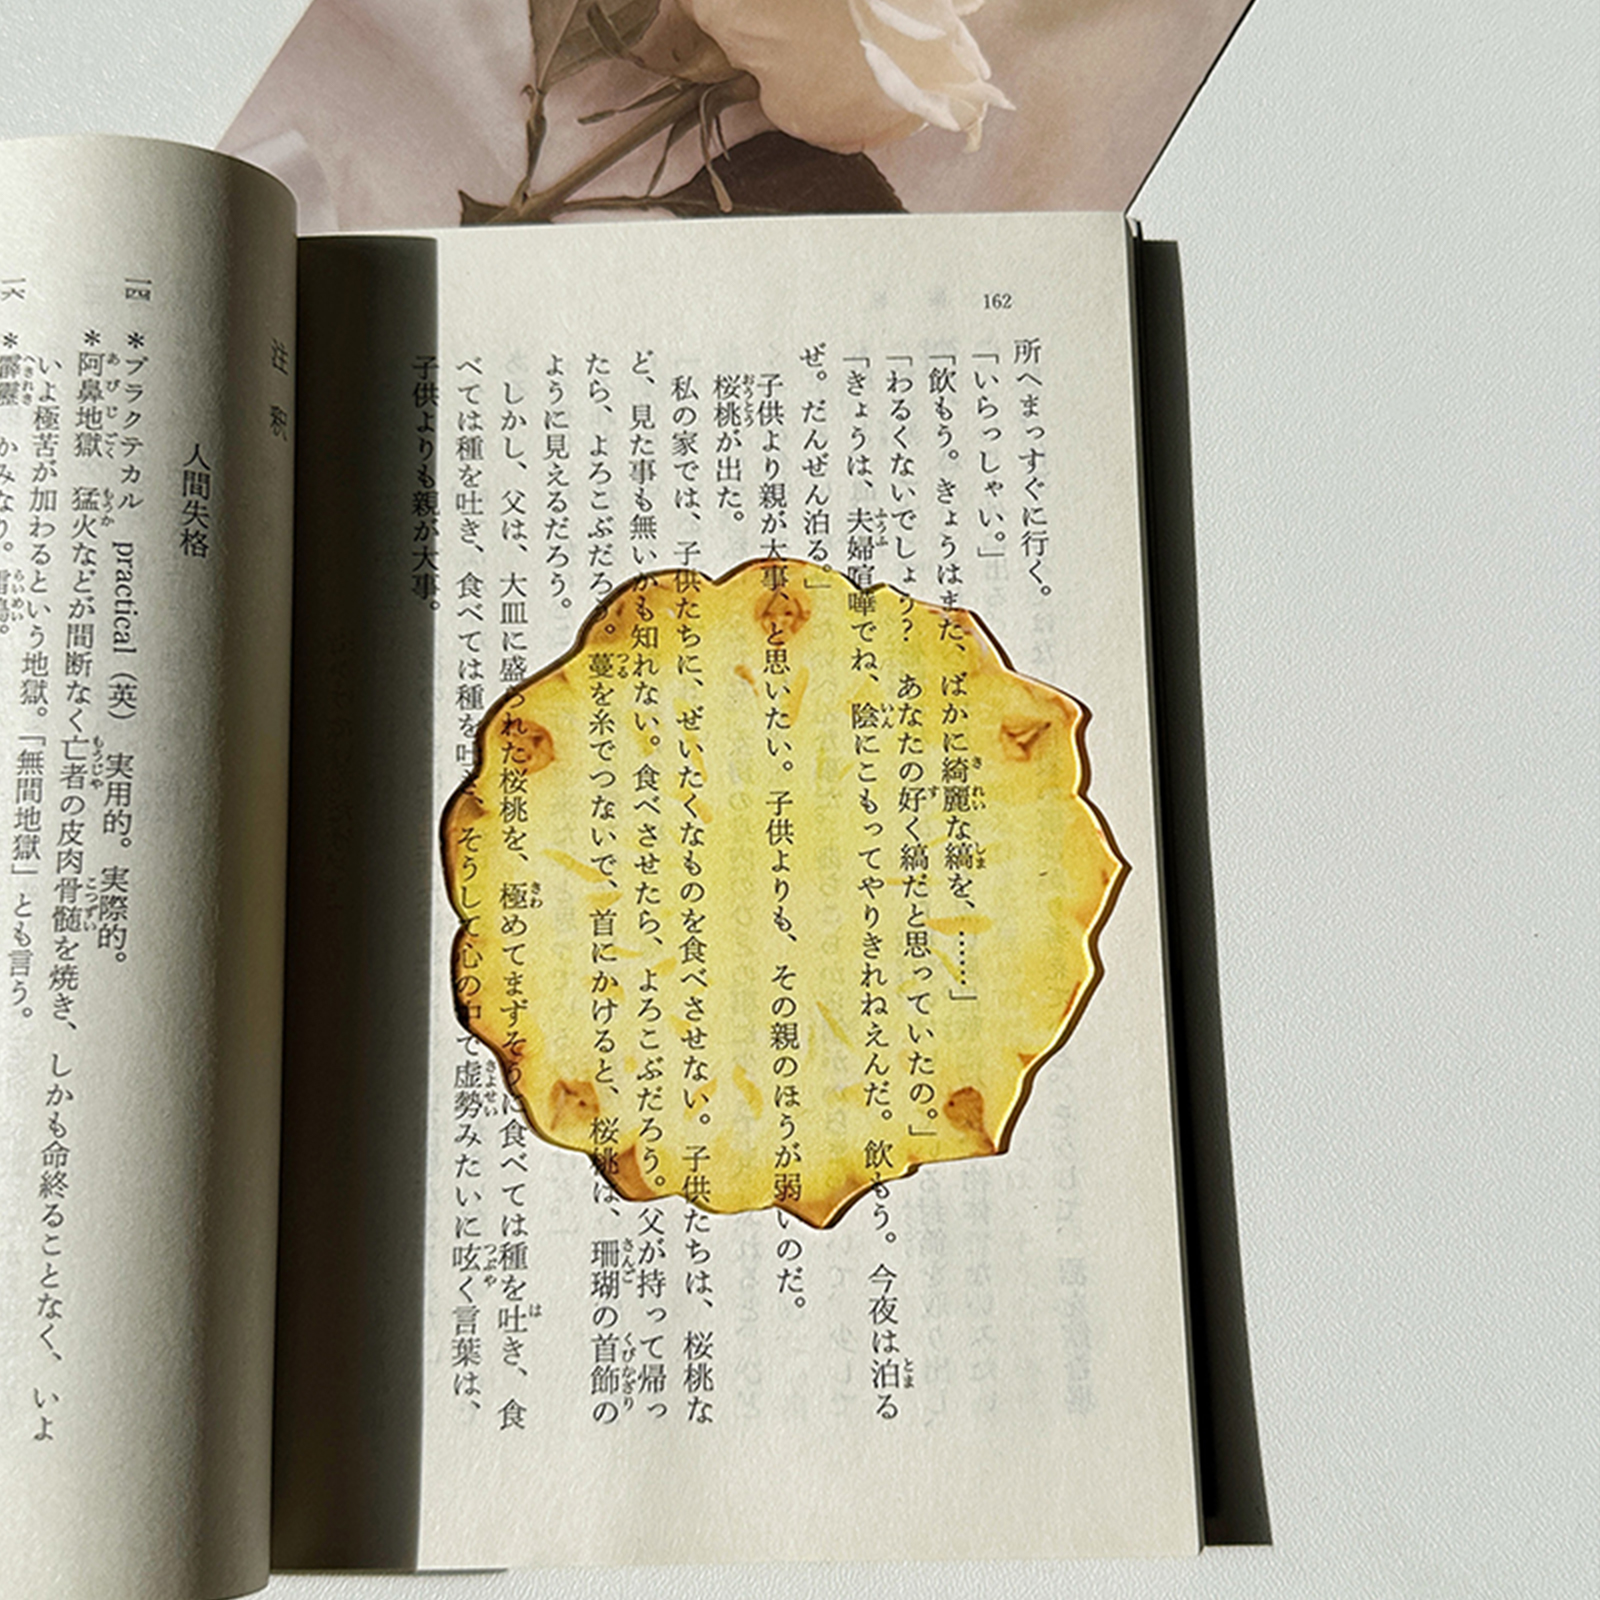 162
所へまっすぐに行く。
「いらっしゃい。」
「飲もう。きょうはまた、ばかに綺麗な縞を、……」
「わるくないでしょう？　あなたの好く縞だと思っていたの。」
「きょうは、夫婦喧嘩でね、陰にこもってやりきれねえんだ。飲もう。今夜は泊る
ぜ。だんぜん泊る。」
子供より親が大事、と思いたい。子供よりも、その親のほうが弱いのだ。
桜桃が出た。
私の家では、子供たちに、ぜいたくなものを食べさせない。子供たちは、桜桃な
ど、見た事も無いかも知れない。食べさせたら、よろこぶだろう。父が持って帰っ
たら、よろこぶだろう。蔓を糸でつないで、首にかけると、桜桃は、珊瑚の首飾の
ように見えるだろう。
しかし、父は、大皿に盛られた桜桃を、極めてまずそうに食べては種を吐き、食
べては種を吐き、食べては種を吐き、そうして心の中で虚勢みたいに呟く言葉は、
子供よりも親が大事。
注　釈
人間失格
一四　＊プラクテカル　practical（英）　実用的。実際的。
＊阿鼻地獄　猛火などが間断なく亡者の皮肉骨髄を焼き、しかも命終ることなく、いよ
いよ極苦が加わるという地獄。「無間地獄」とも言う。
一六　＊霹靂　かみなり。雷鳴。